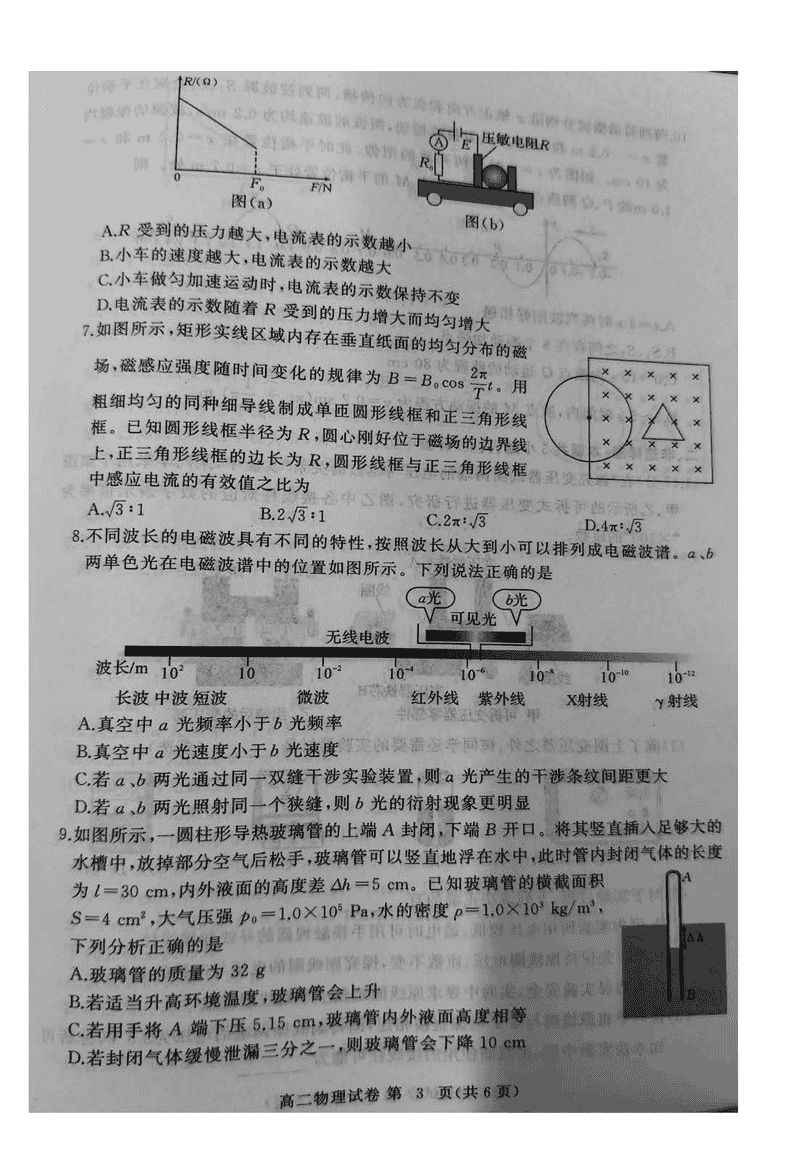 R/(Ω)
0
F₀
F/N
图(a)
A
E
压敏电阻R
R₀
图(b)
A.R 受到的压力越大,电流表的示数越小
B.小车的速度越大,电流表的示数越大
C.小车做匀加速运动时,电流表的示数保持不变
D.电流表的示数随着 R 受到的压力增大而均匀增大
7.如图所示,矩形实线区域内存在垂直纸面的均匀分布的磁
场,磁感应强度随时间变化的规律为 B=B₀cos 2π/T t。用
粗细均匀的同种细导线制成单匝圆形线框和正三角形线
框。已知圆形线框半径为 R,圆心刚好位于磁场的边界线
上,正三角形线框的边长为 R,圆形线框与正三角形线框
中感应电流的有效值之比为
A.√3∶1 B.2√3∶1 C.2π∶√3 D.4π∶√3
8.不同波长的电磁波具有不同的特性,按照波长从大到小可以排列成电磁波谱。a、b
两单色光在电磁波谱中的位置如图所示。下列说法正确的是
a光 b光
可见光
无线电波
波长/m 10² 10 10⁻² 10⁻⁴ 10⁻⁶ 10⁻⁸ 10⁻¹⁰ 10⁻¹²
长波 中波 短波 微波 红外线 紫外线 X射线 γ射线
A.真空中 a 光频率小于 b 光频率
B.真空中 a 光速度小于 b 光速度
C.若 a、b 两光通过同一双缝干涉实验装置,则 a 光产生的干涉条纹间距更大
D.若 a、b 两光照射同一个狭缝,则 b 光的衍射现象更明显
9.如图所示,一圆柱形导热玻璃管的上端 A 封闭,下端 B 开口。将其竖直插入足够大的
水槽中,放掉部分空气后松手,玻璃管可以竖直地浮在水中,此时管内封闭气体的长度
为 l=30 cm,内外液面的高度差 Δh=5 cm。已知玻璃管的横截面积
S=4 cm²,大气压强 p₀=1.0×10⁵ Pa,水的密度 ρ=1.0×10³ kg/m³,
下列分析正确的是
A
Δh
B
A.玻璃管的质量为 32 g
B.若适当升高环境温度,玻璃管会上升
C.若用手将 A 端下压 5.15 cm,玻璃管内外液面高度相等
D.若封闭气体缓慢泄漏三分之一,则玻璃管会下降 10 cm
高二物理试卷 第 3 页(共 6 页)